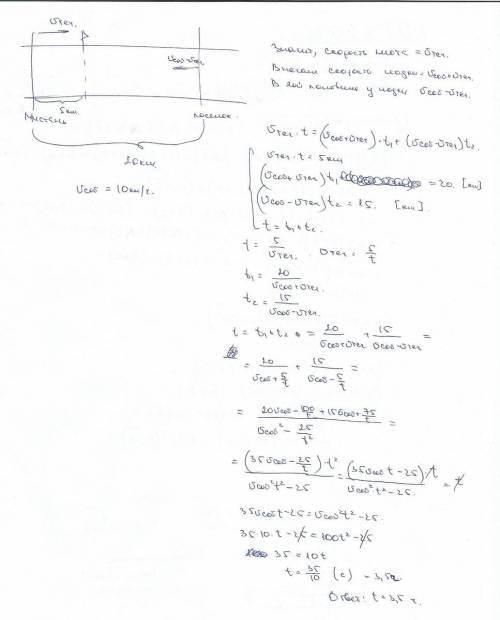 Vтеч.
Vсоб-Vтеч
5км.
Пристань
поселок.
20км.
Vсоб = 10км/ч.
Значит, скорость плота = Vтеч.
Вначале скорость лодки = Vсоб+Vтеч.
В 2ой половине у лодки Vсоб-Vтеч.
Vтеч. t = (Vсоб+Vтеч)·t₁ + (Vсоб-Vтеч)t₂.
Vтеч. t = 5км
(Vсоб+Vтеч)t₁ = 20. [км]
(Vсоб-Vтеч)t₂ = 15. [км].
t = t₁+t₂.
t = 5/Vтеч. Vтеч. = 5/t
t₁ = 20/(Vсоб+Vтеч.)
t₂ = 15/(Vсоб-Vтеч.)
t = t₁+t₂ = 20/(Vсоб+Vтеч) + 15/(Vсоб-Vтеч) =
= 20/(Vсоб+5/t) + 15/(Vсоб-5/t) =
= (20Vсоб - 100/t + 15Vсоб + 75/t)/(Vсоб² - 25/t²) =
= (35Vсоб - 25/t)·t²/(Vсоб²t² - 25) = (35Vсоб t - 25)·t/(Vсоб²t² - 25.) = t
35Vсоб t - 25 = Vсоб²t² - 25.
35·10·t - 25 = 100t² - 25
35 = 10t
t = 35/10 (с) = 3,5ч
Ответ: t = 3,5 ч.